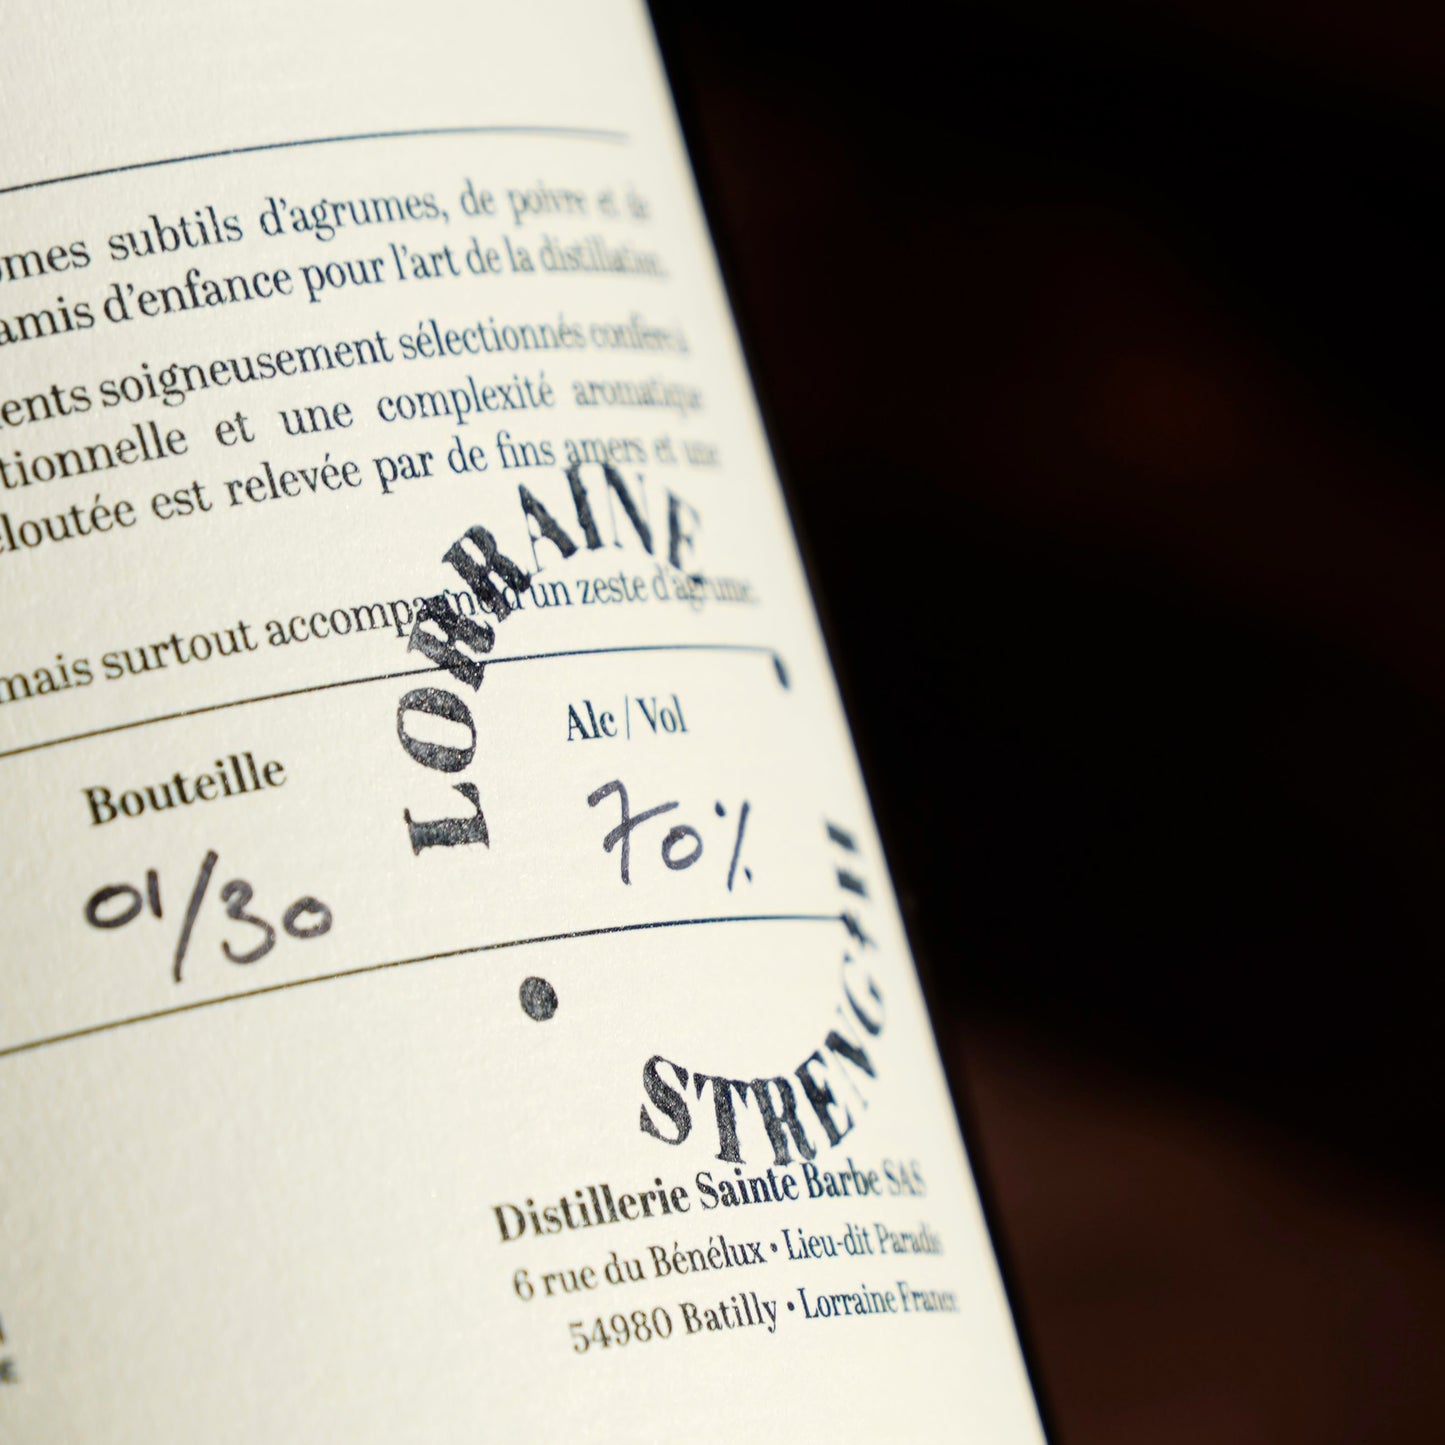 subtils d'agrumes, de poivre et de
amis d'enfance pour l'art de la distillation.
soigneusement sélectionnés
et une complexité aromatique
est relevée par de fins amers et une
mais surtout accompagné d'un zeste d'agrume.
LORRAINE
STRENGTH
Bouteille
01/30
Alc / Vol
70%
Distillerie Sainte Barbe SAS
6 rue du Bénélux • Lieu-dit Paradis
54980 Batilly • Lorraine France